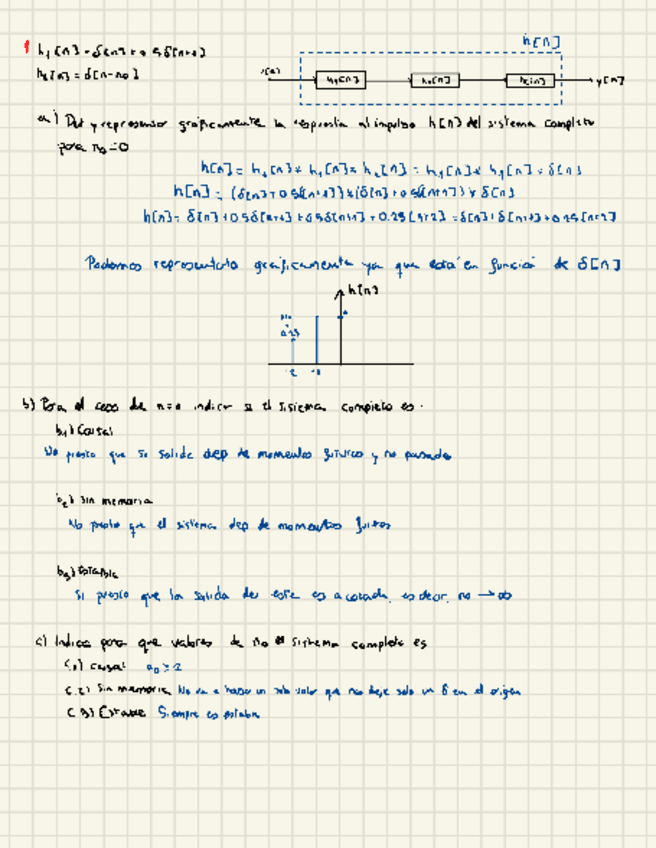 1 h₁[n] = δ[n] + 0,5δ[n+1]
h₂[n] = δ[n-n₀]
h[n]
x[n] h₁[n] h₂[n] y[n]
a) Det y representar gráficamente la respuesta al impulso h[n] del sistema completo
para n₀=0
h[n] = h₁[n] * h₁[n] * h₂[n] = h₁[n] * h₁[n] * δ[n]
h[n] = (δ[n]+0,5δ[n+1])*(δ[n]+0,5δ[n+1])*δ[n]
h[n] = δ[n]+0,5δ[n+1]+0,5δ[n+1]+0,25[n+2] = δ[n]+δ[n+1]+0,25[n+2]
Podemos representarla gráficamente ya que está en función de δ[n]
h[n]
0,25
-2 -1
b) Para el caso de n=0 indicar si el sistema completo es:
b₁) Causal
No puesto que su salida dep de momentos futuros y no pasado
b₂) Sin memoria
No puesto que el sistema dep de momentos futuros
b₃) Estable
Si puesto que la salida de este es acotada, es decir, no → ∞
c) Indica para que valores de n₀ el sistema completo es
c.1) causal n₀ ≥ 2
c.2) Sin memoria No va a haber un solo valor que nos deje solo un δ en el origen
c.3) Estable Siempre es estable